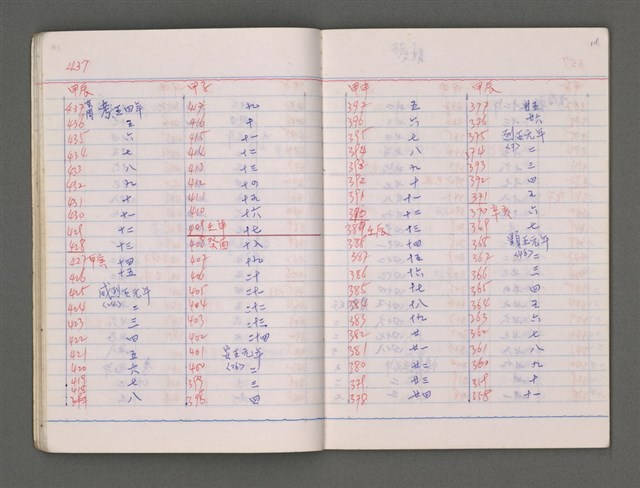 437
甲辰
437 考王四年
436 五
435 六
434 七
433 八
432 九
431 十
430 十一
429 十二
428 十三
427 十四
426 十五
425 威烈王元年
424 二
423 三
422 四
421 五
420 六
419 七
418 八
甲子
417 九
416 十
415 十一
414 十二
413 十三
412 十四
411 十五
410 十六
409 壬申 十七
408 癸酉 十八
407 十九
406 二十
405 二十
404 二十二
403 二十三
402 二十四
401 安王元年
(26)
400 二
399 三
398 四
甲申
397 五
396 六
395 七
394 八
393 九
392 十
391 十一
390 十二
389 壬辰 十三
388 十四
387 十五
386 十六
385 十七
384 十八
383 十九
382 廿
381 廿一
380 廿二
379 廿三
378 廿四
甲辰
377 廿五
376 廿六
375 烈王元年
374 二
393 三
392 四
371 五
370 辛亥 六
369 七
368 顯王元年
367 二
366 三
365 四
364 五
363 六
362 七
361 八
360 九
359 十
358 十一